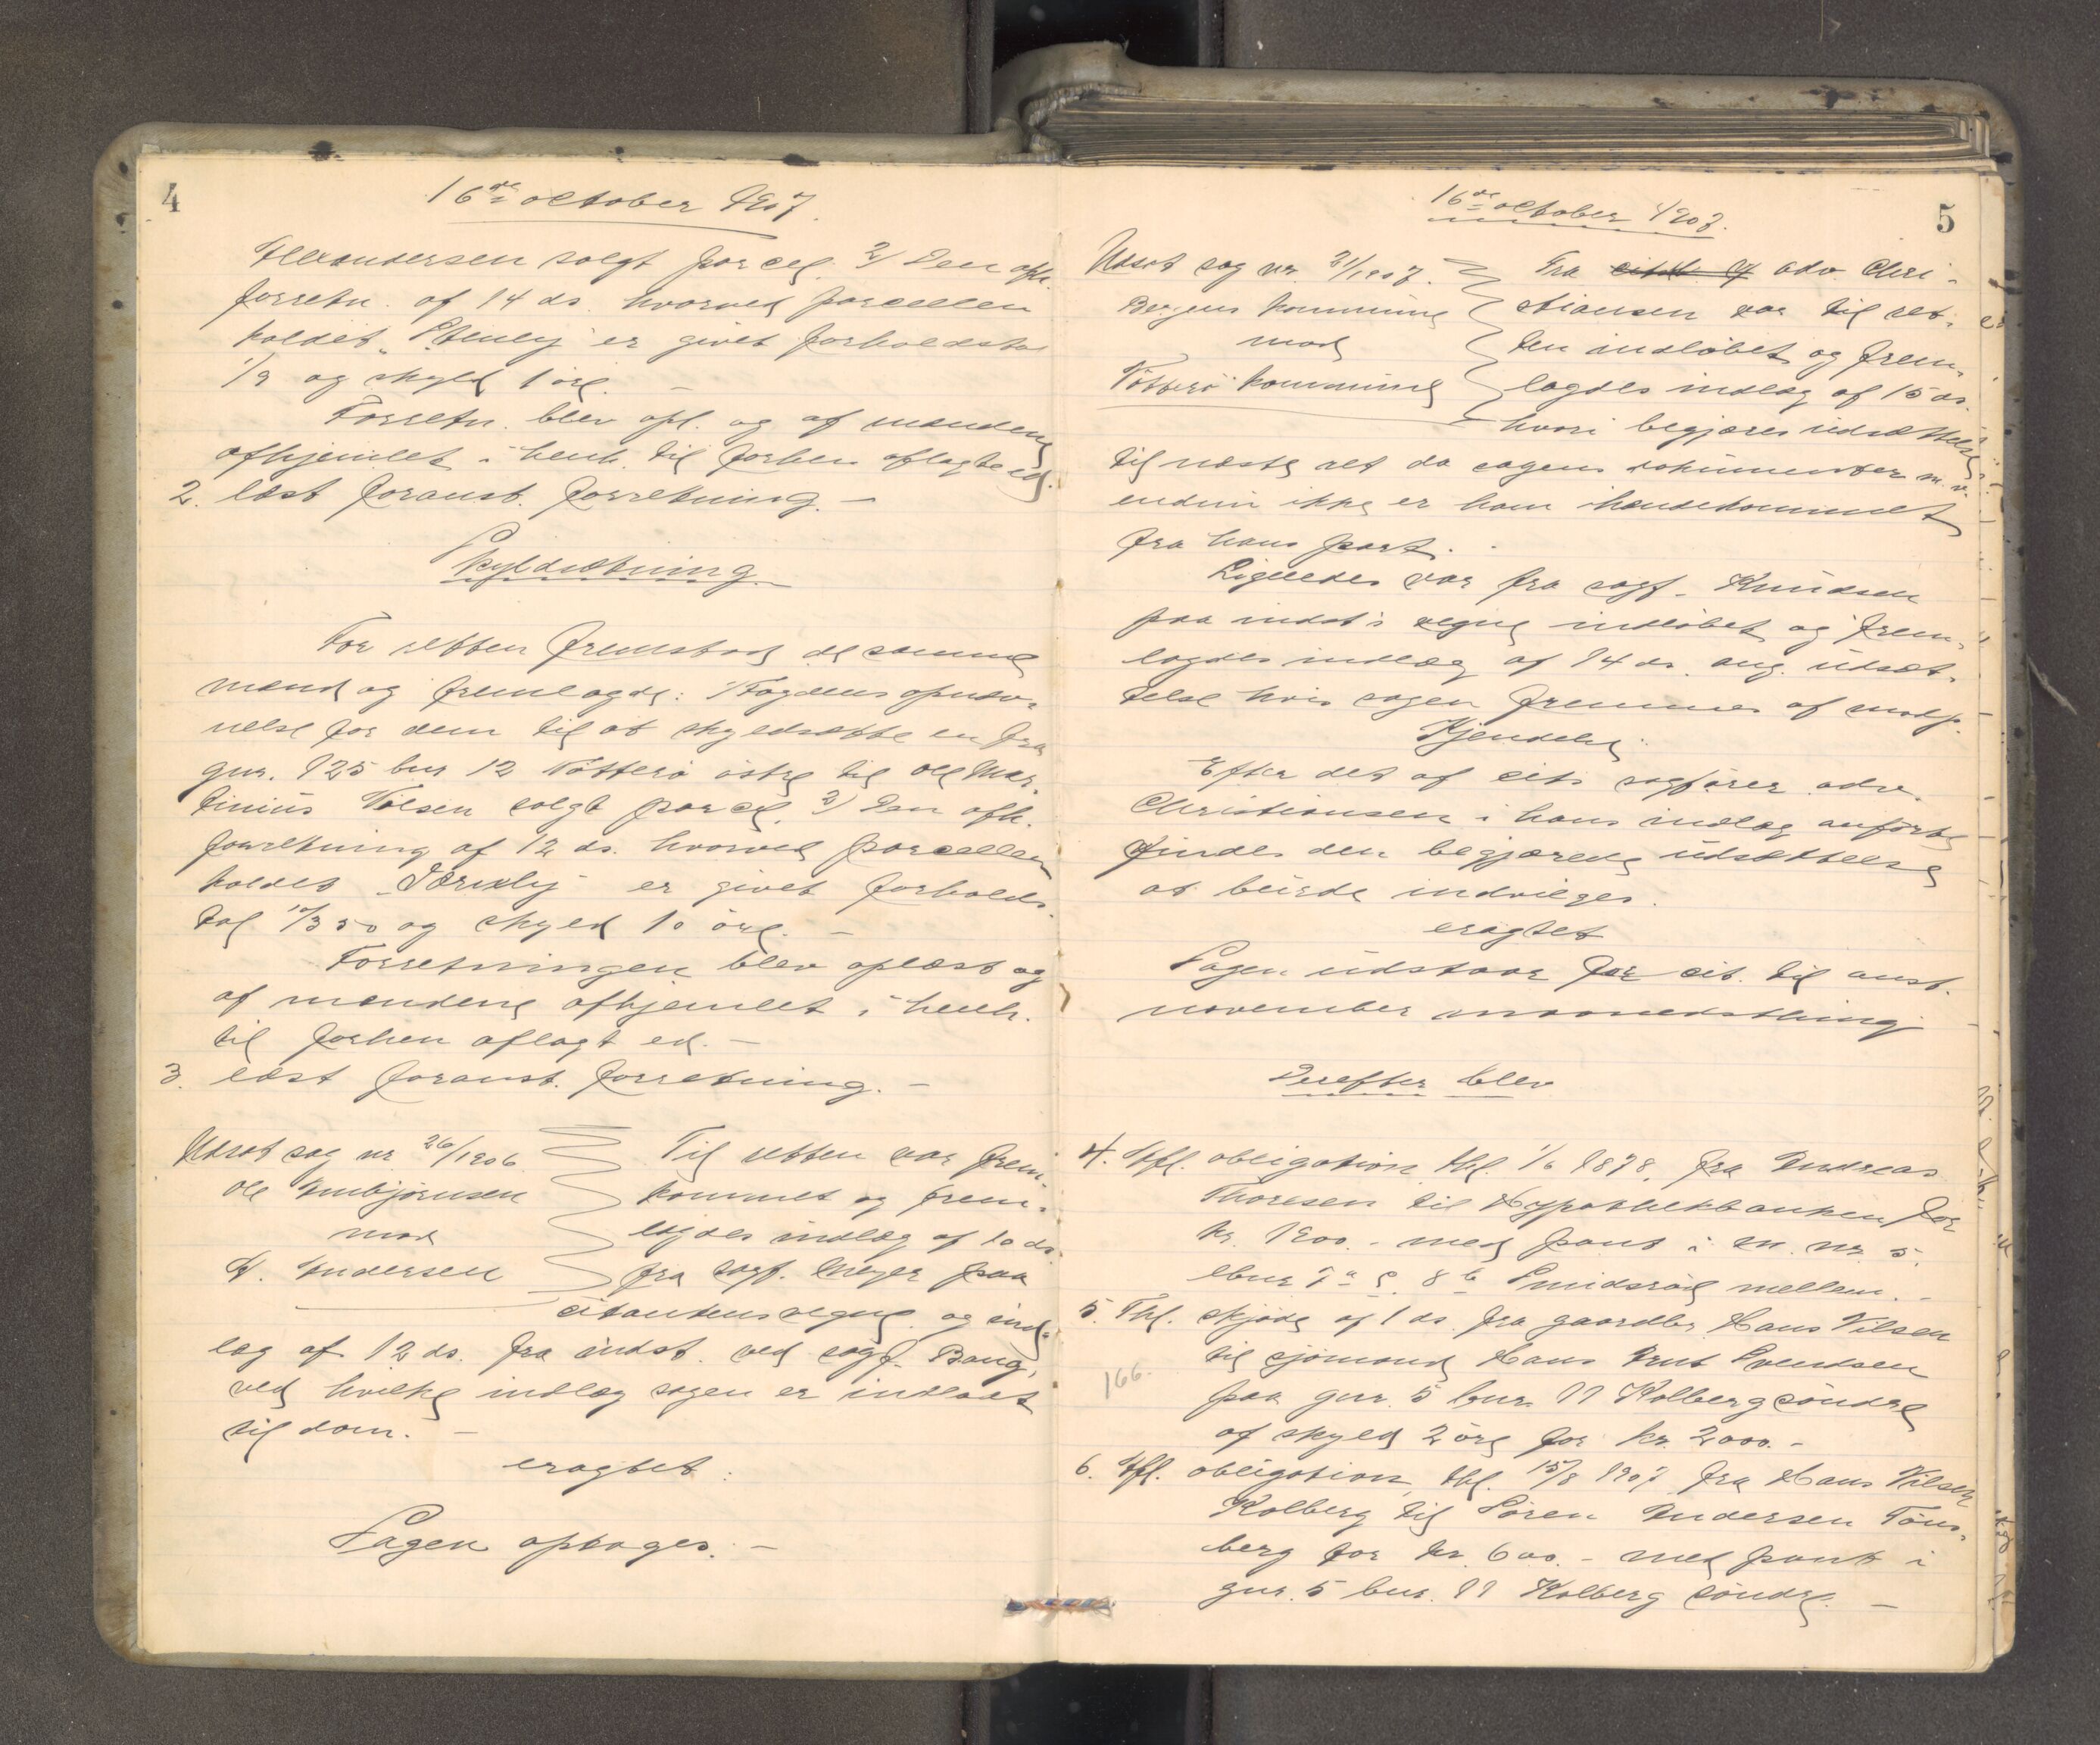 4
16de october 1907.
Alexandersen solgt parcel. 2) Den afh.
forretn. af 14 ds. hvorved parcellen
kaldet "Stenly" er givet forholdstal
1/9 og skyld 1 øre. –
Forretn. blev opl. og af mændene
afhjemlet i henh. til forhen aflagte ed.
2. læst foranst. forretning. –
Skyldsætning.
For retten fremstod de samme
mænd og fremlagde: 1) Fogdens opnæv-
nelse for dem til at skyldsætte en fra
gnr. 125 bnr 12 Nøtterø østre til Ole Mar-
tinius Nilsen solgt parcel. 2) Den afh.
forretning af 12 ds. hvorved parcellen
kaldet er givet forholds-
tal 10/350 og skyld 10 øre. –
Forretningen blev oplæst og
af mændene afhjemlet i henh.
til forhen aflagt ed. –
3. læst foranst. forretning. –
Udsat sag nr 26/1906
Ole Imbjørnsen
mod
A. Andersen
Til retten var frem-
kommet og frem-
lagdes indlæg af 10 ds.
fra sagf. Meyer paa
citantens vegne og ind-
læg af 12 ds. fra indst. ved sagf. Bang,
ved hvilke indlæg sagen er indladt
til dom. –
eragtet:
Sagen optages. –
5
16de october 1907.
Udsat sag nr. 21/1907.
kommune
mod
Nøtterø kommune
Fra adv. Chri-
stiansen var til ret-
ten indløbet og frem-
lagdes indlæg af 15 ds.
hvori begjæres udsættelse
til næste ret da sagens dokumenter m. v.
endnu ikke er ham ihændekommet
fra hans part.
Ligeledes var fra sagf. Knudsen
paa indst's vegne indløbet og frem-
lagdes indlæg af 14 ds. ang. udsæt-
telse hvis sagen fremmes af modp.
Kjendelse:
Efter det af cits sagfører adv.
Christiansen i hans indlæg anførte
findes den begjærede udsættelse
at burde indvilges.
eragtet
Sagen udstaar for cit. til anst.
november maanedsthing
Derefter blev
4. Afl. obligation thl. 1/6 1878, fra Andreas
Thoresen til Hypothekbanken for
kr. 1200. – med pant i m. nr. 5.
lbnr 7a & 8b Smidsrød mellem. –
5. Thl. skjøde af 1 ds. fra gaardbr. Hans Nilsen
til sjømand Hans Arnt Svendsen
166.
paa gnr. 5 bnr. 11 Kolberg søndre
af skyld 2 øre for kr. 2000. –
6. Afl. obligation, thl. 15/8 1907 fra Hans Nilsen
Kolberg til Søren Andersen Tøns-
berg for kr. 600. – med pant i
gnr. 5 bnr. 11 Kolberg søndre. –